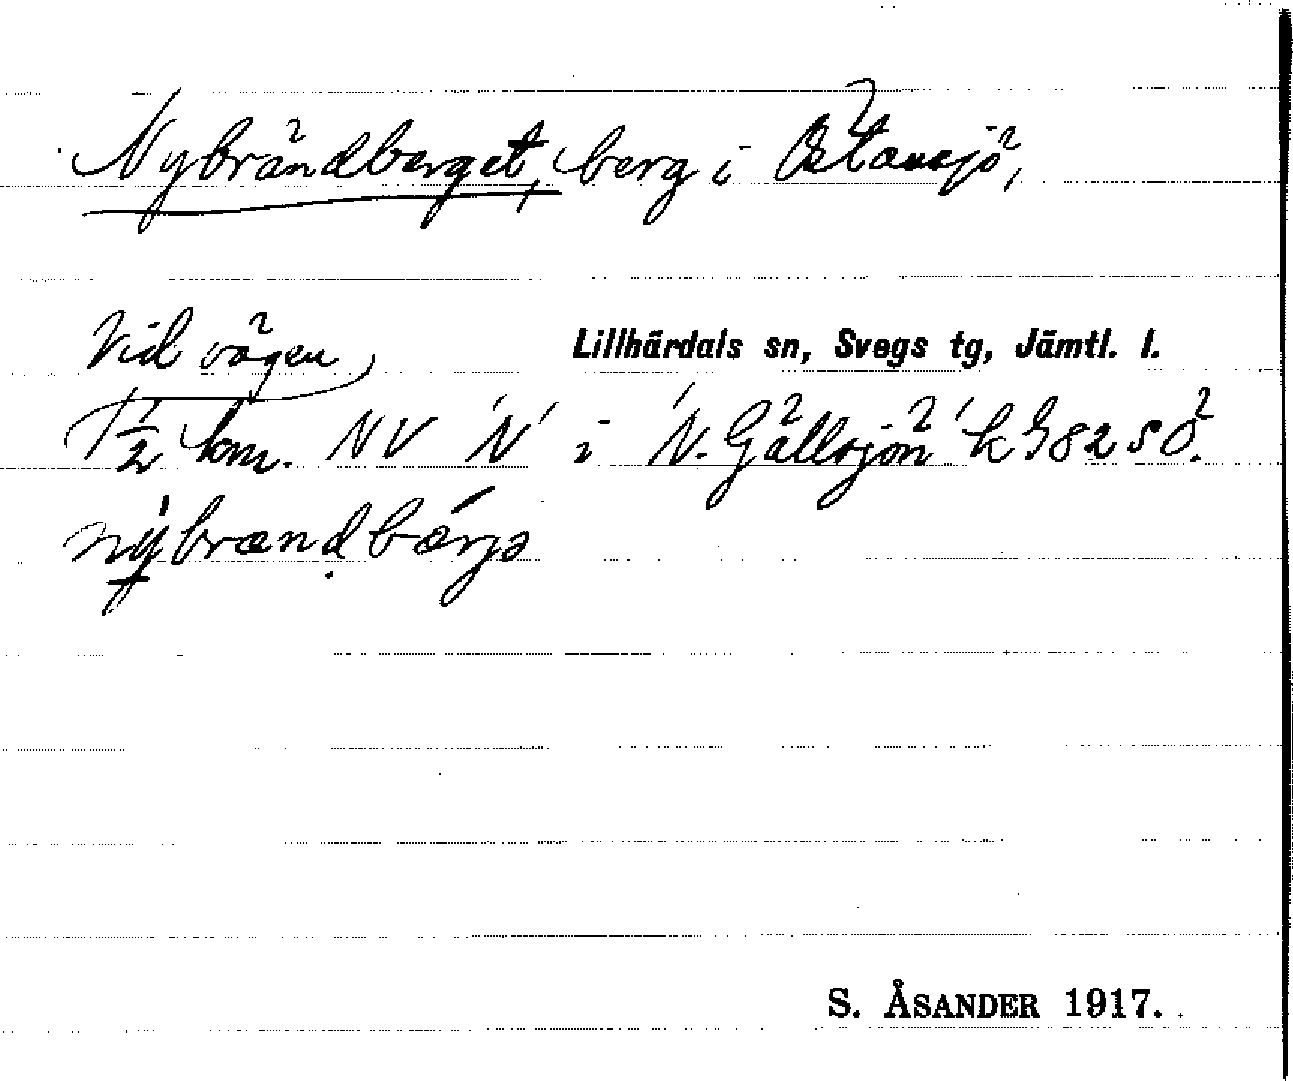 Nybrändberget, berg i Östansjö,
Vid vägen Lillhärdals sn, Svegs tg, Jämtl. l.
1½ km. NV 'N' i 'N. Gällsjön' k G 82 SÖ.
nybrændbærjə
S. ÅSANDER 1917.